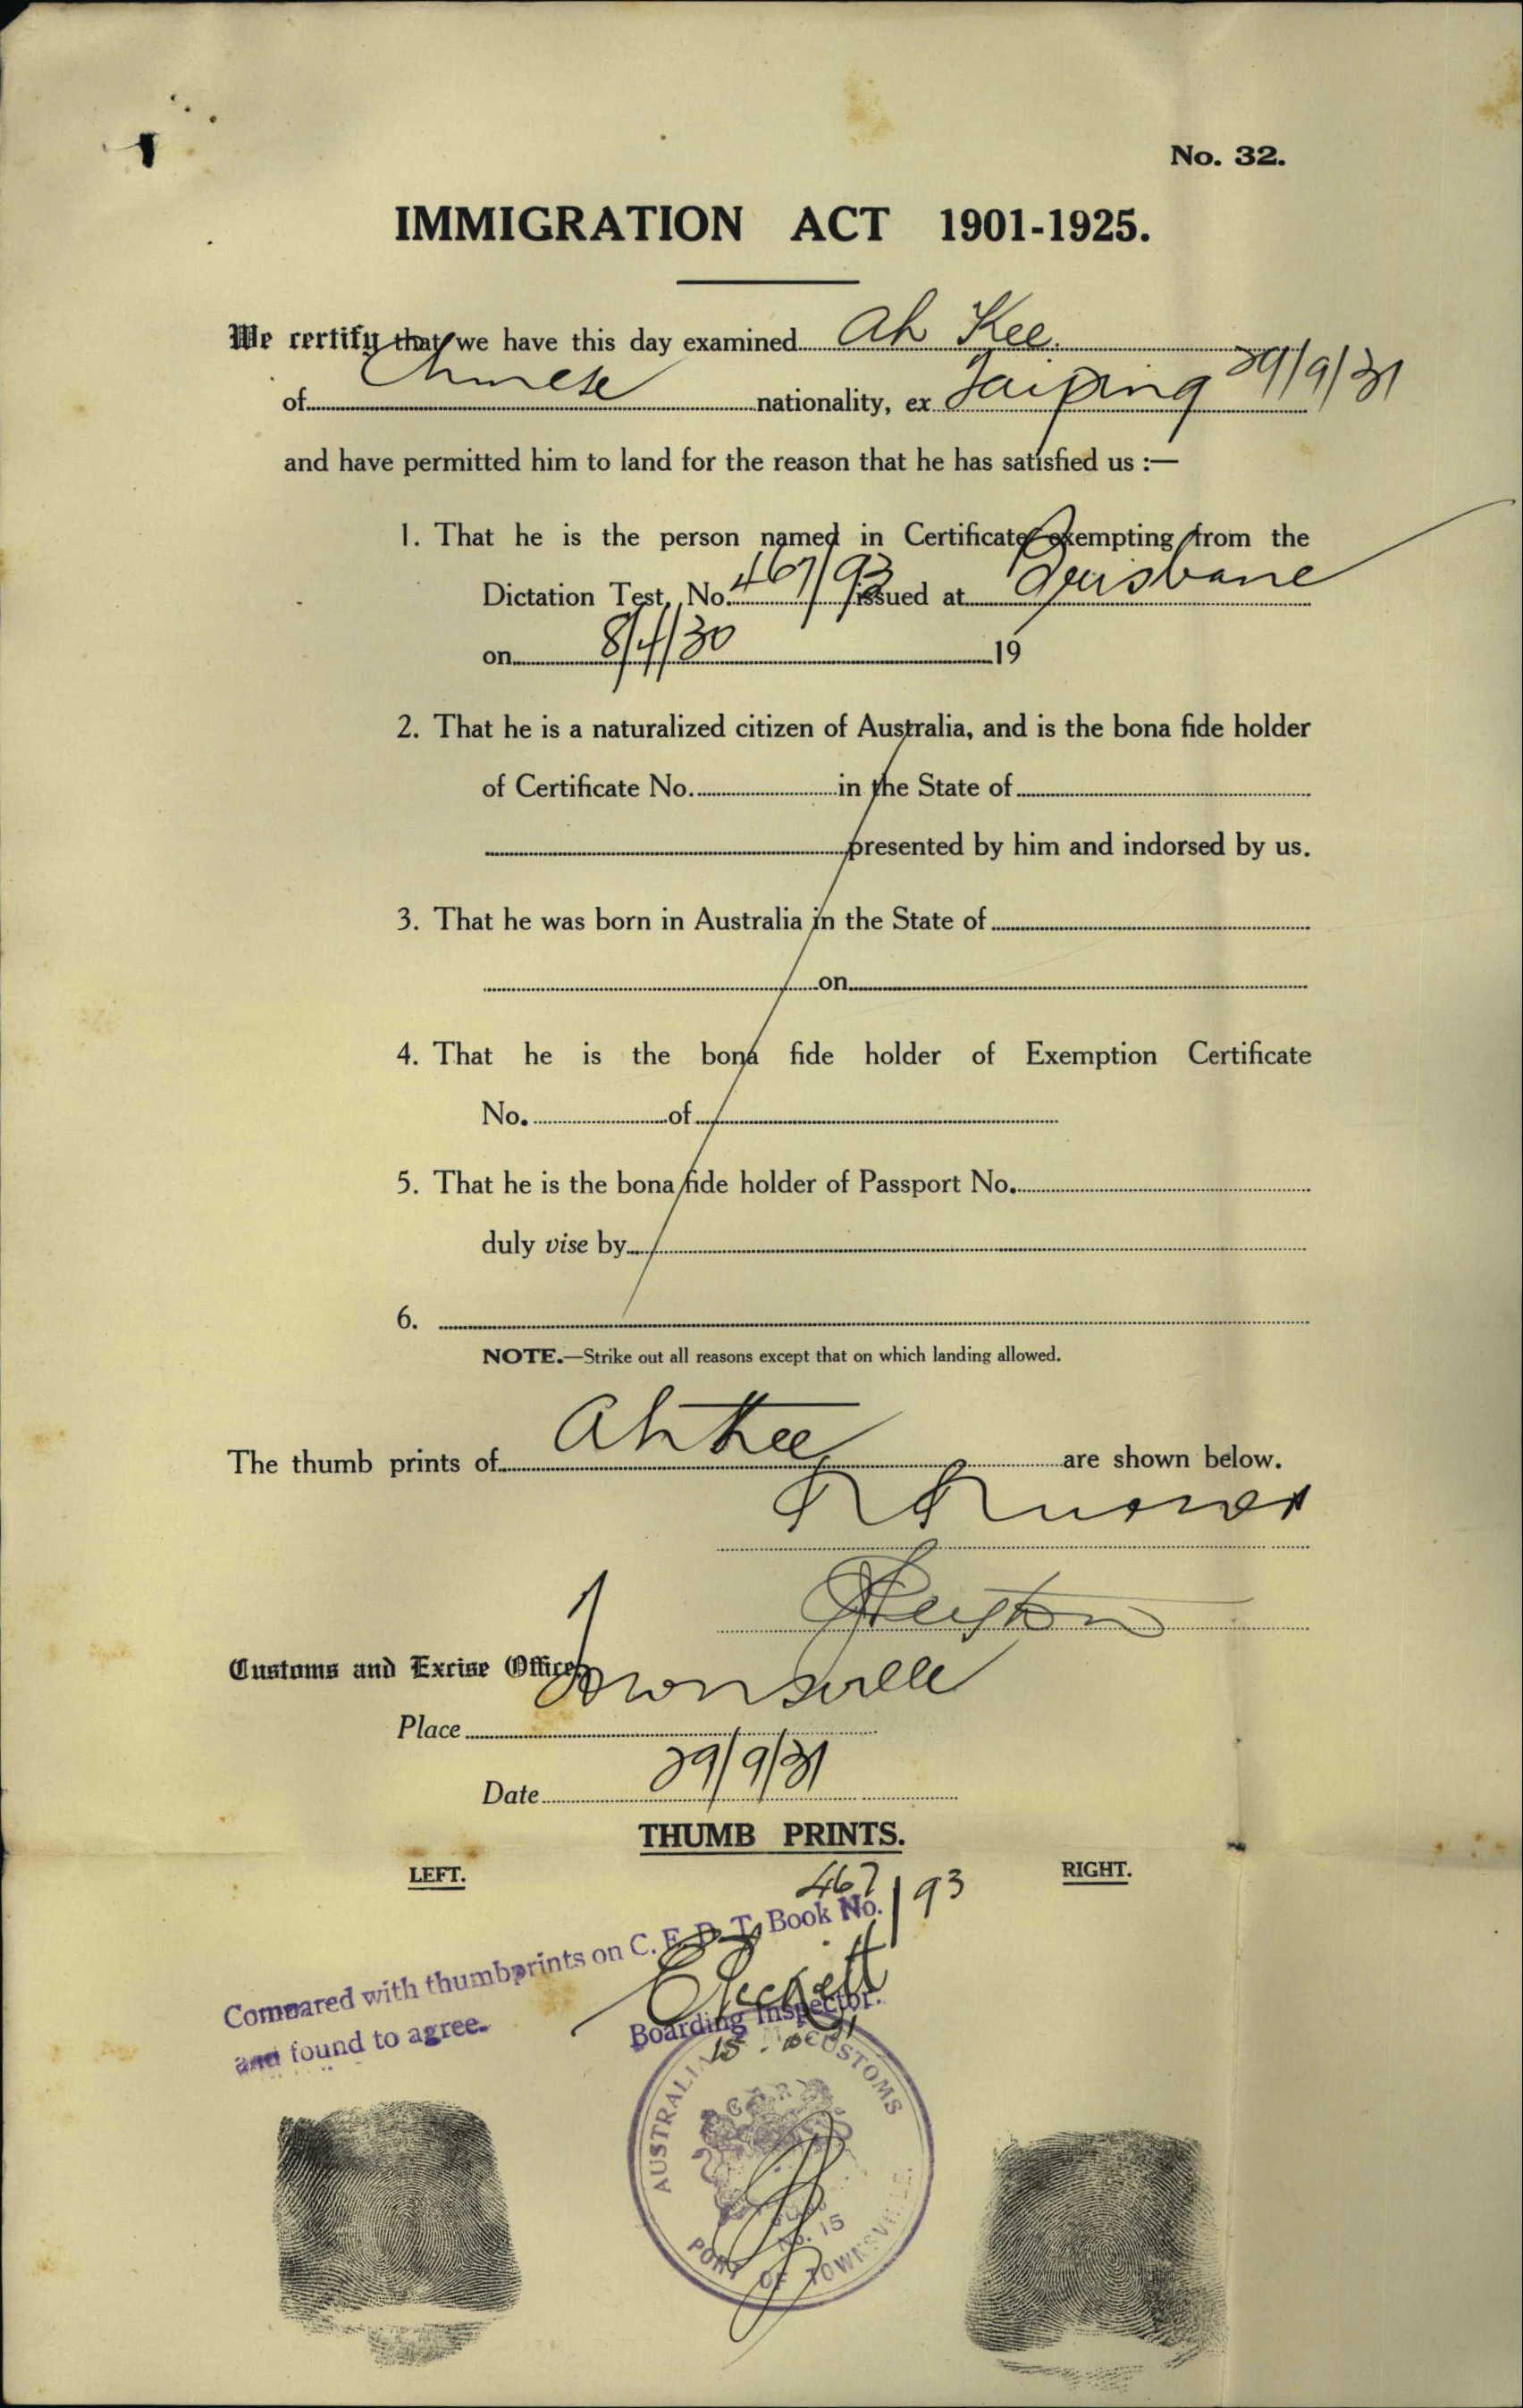 No. 32.
IMMIGRATION ACT 1901-1925.
We certify that we have this day examined Ah Kee.
of Chinese nationality, ex Taiping 29/9/31
and have permitted him to land for the reason that he has satisfied us :—
1. That he is the person named in Certificate exempting from the
Dictation Test, No. 467/93 issued at Brisbane
on 8/4/30 19
2. That he is a naturalized citizen of Australia, and is the bona fide holder
of Certificate No. in the State of
presented by him and indorsed by us.
3. That he was born in Australia in the State of
on
4. That he is the bona fide holder of Exemption Certificate
No. of
5. That he is the bona fide holder of Passport No.
duly vise by
6.
NOTE.—Strike out all reasons except that on which landing allowed.
The thumb prints of Ah Kee are shown below.
Customs and Excise Office, Townsville
Place
Date 29/9/31
THUMB PRINTS.
LEFT. RIGHT.
467/93
Compared with thumbprints on C. E. D. T. Book No.
and found to agree.
Boarding Inspector.
AUSTRALIA CUSTOMS
No. 15
PORT OF TOWNSVILLE.